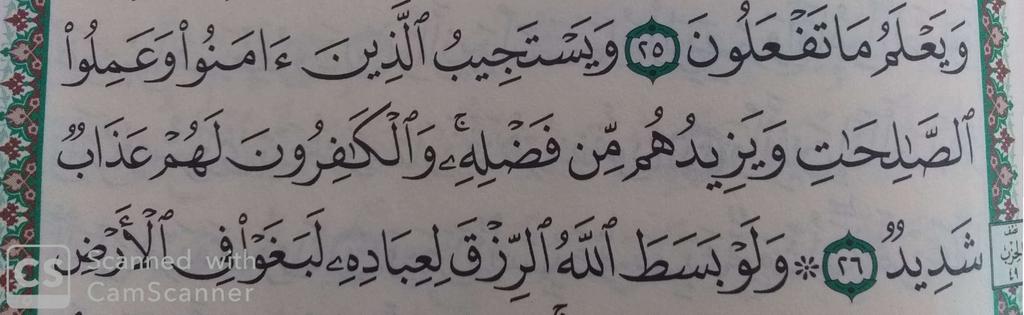 وَيَعْلَمُ مَا تَفْعَلُونَ ٢٥ وَيَسْتَجِيبُ ٱلَّذِينَ ءَامَنُوا۟ وَعَمِلُوا۟
ٱلصَّـٰلِحَـٰتِ وَيَزِيدُهُم مِّن فَضْلِهِۦ ۚ وَٱلْكَـٰفِرُونَ لَهُمْ عَذَابٌ
شَدِيدٌ ٢٦ ۞ وَلَوْ بَسَطَ ٱللَّهُ ٱلرِّزْقَ لِعِبَادِهِۦ لَبَغَوْا۟ فِى ٱلْأَرْضِ
نصف
الحزب
٤٩
CS Scanned with
CamScanner